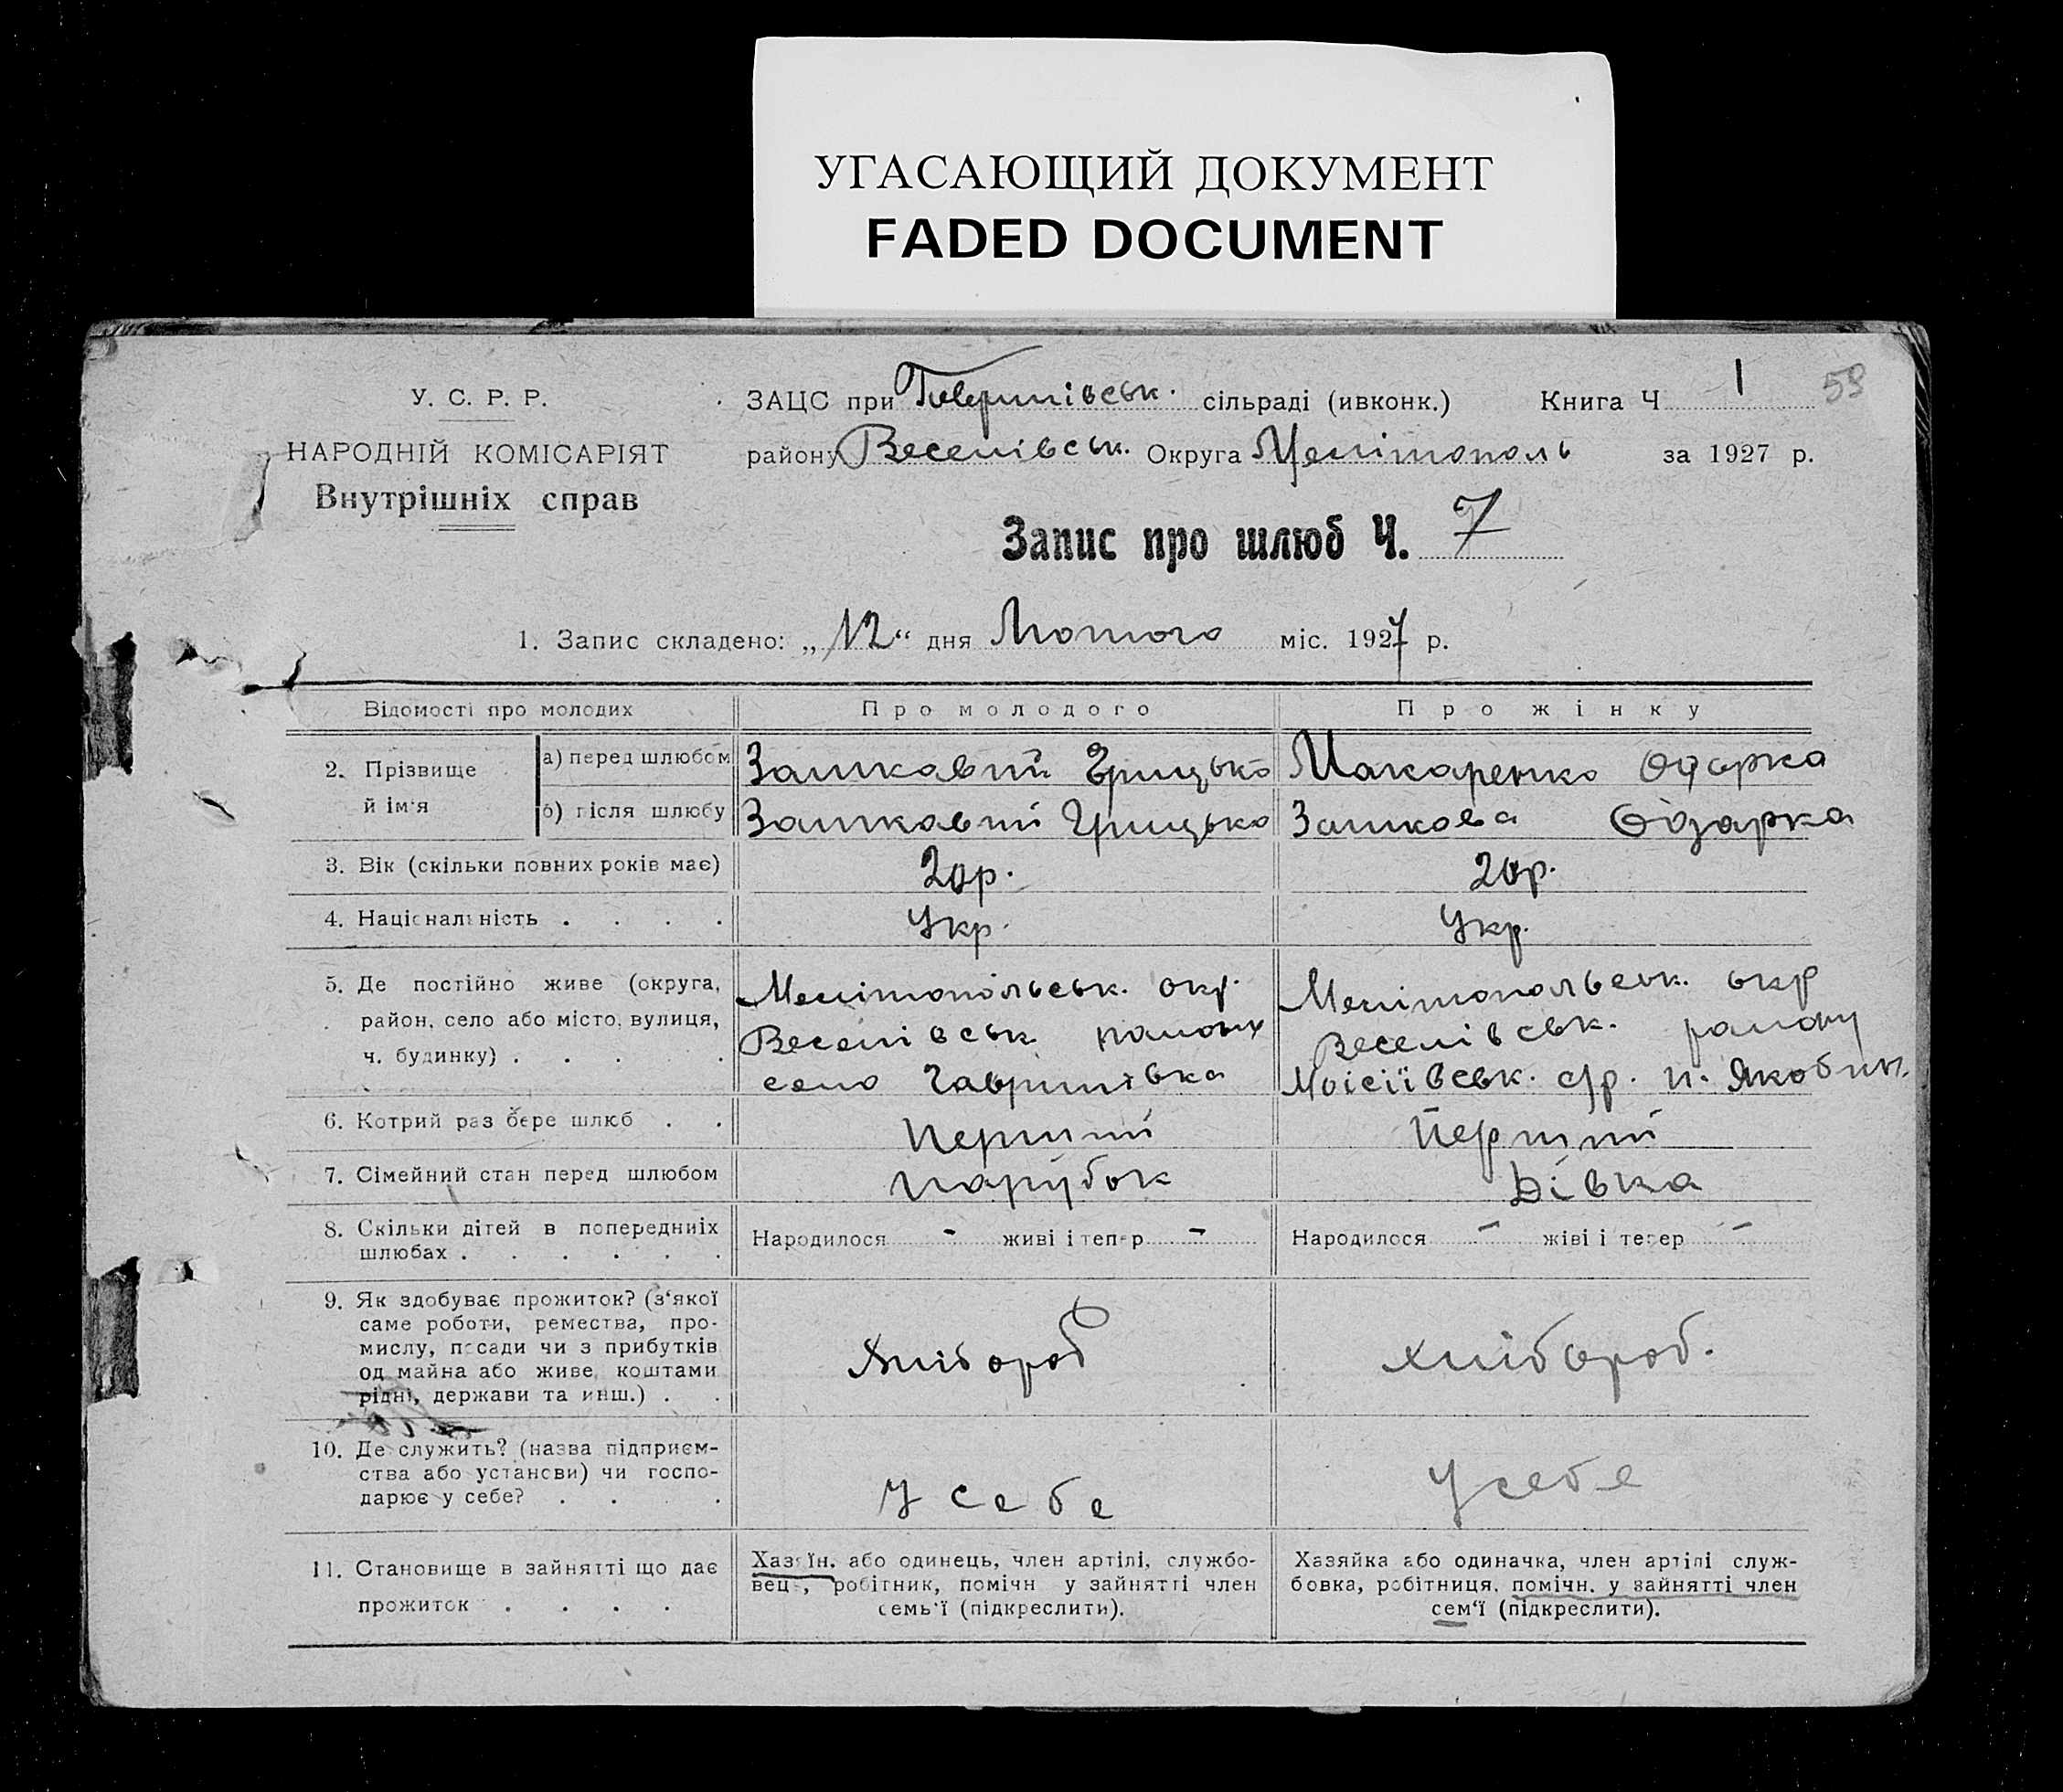 УГАСАЮЩИЙ ДОКУМЕНТ
FADED DOCUMENT
У. С. Р. Р.
НАРОДНІЙ КОМІСАРІЯТ
Внутрішніх справ
ЗАЦС при Гаврилівськ. сільраді (ивконк.) Книга Ч 1
59
району Веселівськ. Округа Мелітополь за 1927 р.
Запис про шлюб Ч. 7
1. Запис складено: „12“ дня Лютого міс. 1927 р.
Відомості про молодих Про молодого Про жінку
2. Прізвище й ім'я
а) перед шлюбом Грицько Макаренко Одарка
б) після шлюбу Грицько Одарка
3. Вік (скільки повних років має) 20р. 20р.
4. Національність . . . . Укр. Укр.
5. Де постійно живе (округа, Мелітопольськ. окр. Мелітопольськ. окр
район, село або місто, вулиця, Веселівськ. району Веселівськ. району
ч. будинку) . . . . . село Гаврилівка Моісіївськ. с/р. п. Якобин.
6. Котрий раз бере шлюб . . Перший Перший
7. Сімейний стан перед шлюбом парубок Дівка
8. Скільки дітей в попередниіх
шлюбах . . . . . . Народилося - живі і тепер - Народилося - жіві і тепер -
9. Як здобуває прожиток? (з'якої
саме роботи, ремества, про-
мислу, посади чи з прибутків
од майна або живе, коштами
рідні, держави та инш.) . .
Хлібороб хлібороб.
10. Де служить? (назва підприєм-
ства або установи) чи госпо-
дарює у себе? . . . .
У себе У себе
11. Становище в зайнятті що дає
прожиток . . . .
Хазяїн, або одинець, член артілі, службо-
вець, робітник, помічн у зайнятті член
семь'ї (підкреслити).
Хазяйка або одиначка, член артілі служ-
бовка, робітниця, помічн. у зайнятті член
сем'ї (підкреслити).